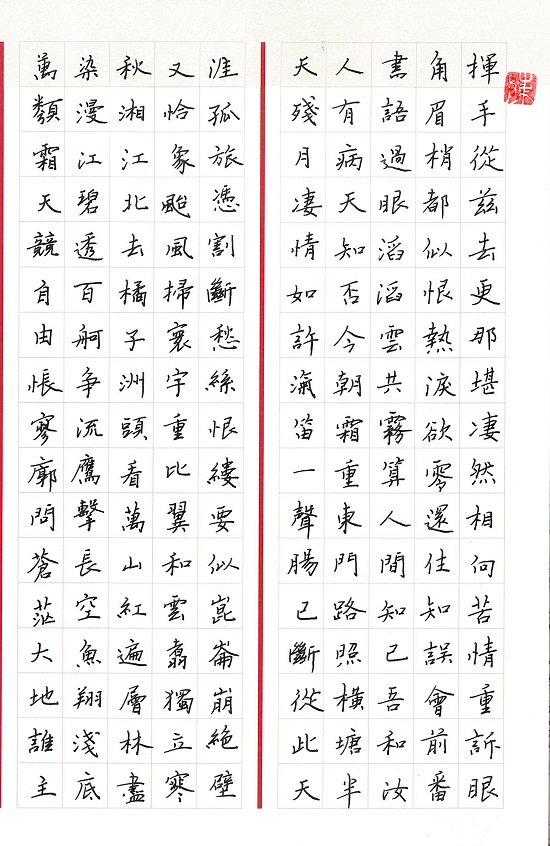 揮手從茲去更那堪凄然相向苦情重訴眼
角眉梢都似恨熱淚欲零還住知誤會前番
書語過眼滔滔雲共霧算人間知己吾和汝
人有病天知否今朝霜重東門路照橫塘半
天殘月凄情如許滊笛一聲腸已斷從此天
涯孤旅憑割斷愁絲恨縷要似崑崙崩絕壁
又恰象颱風掃寰宇重比翼和雲翥獨立寒
秋湘江北去橘子洲頭看萬山紅遍層林盡
染漫江碧透百舸爭流鷹擊長空魚翔淺底
萬類霜天競自由悵寥廓問蒼茫大地誰主